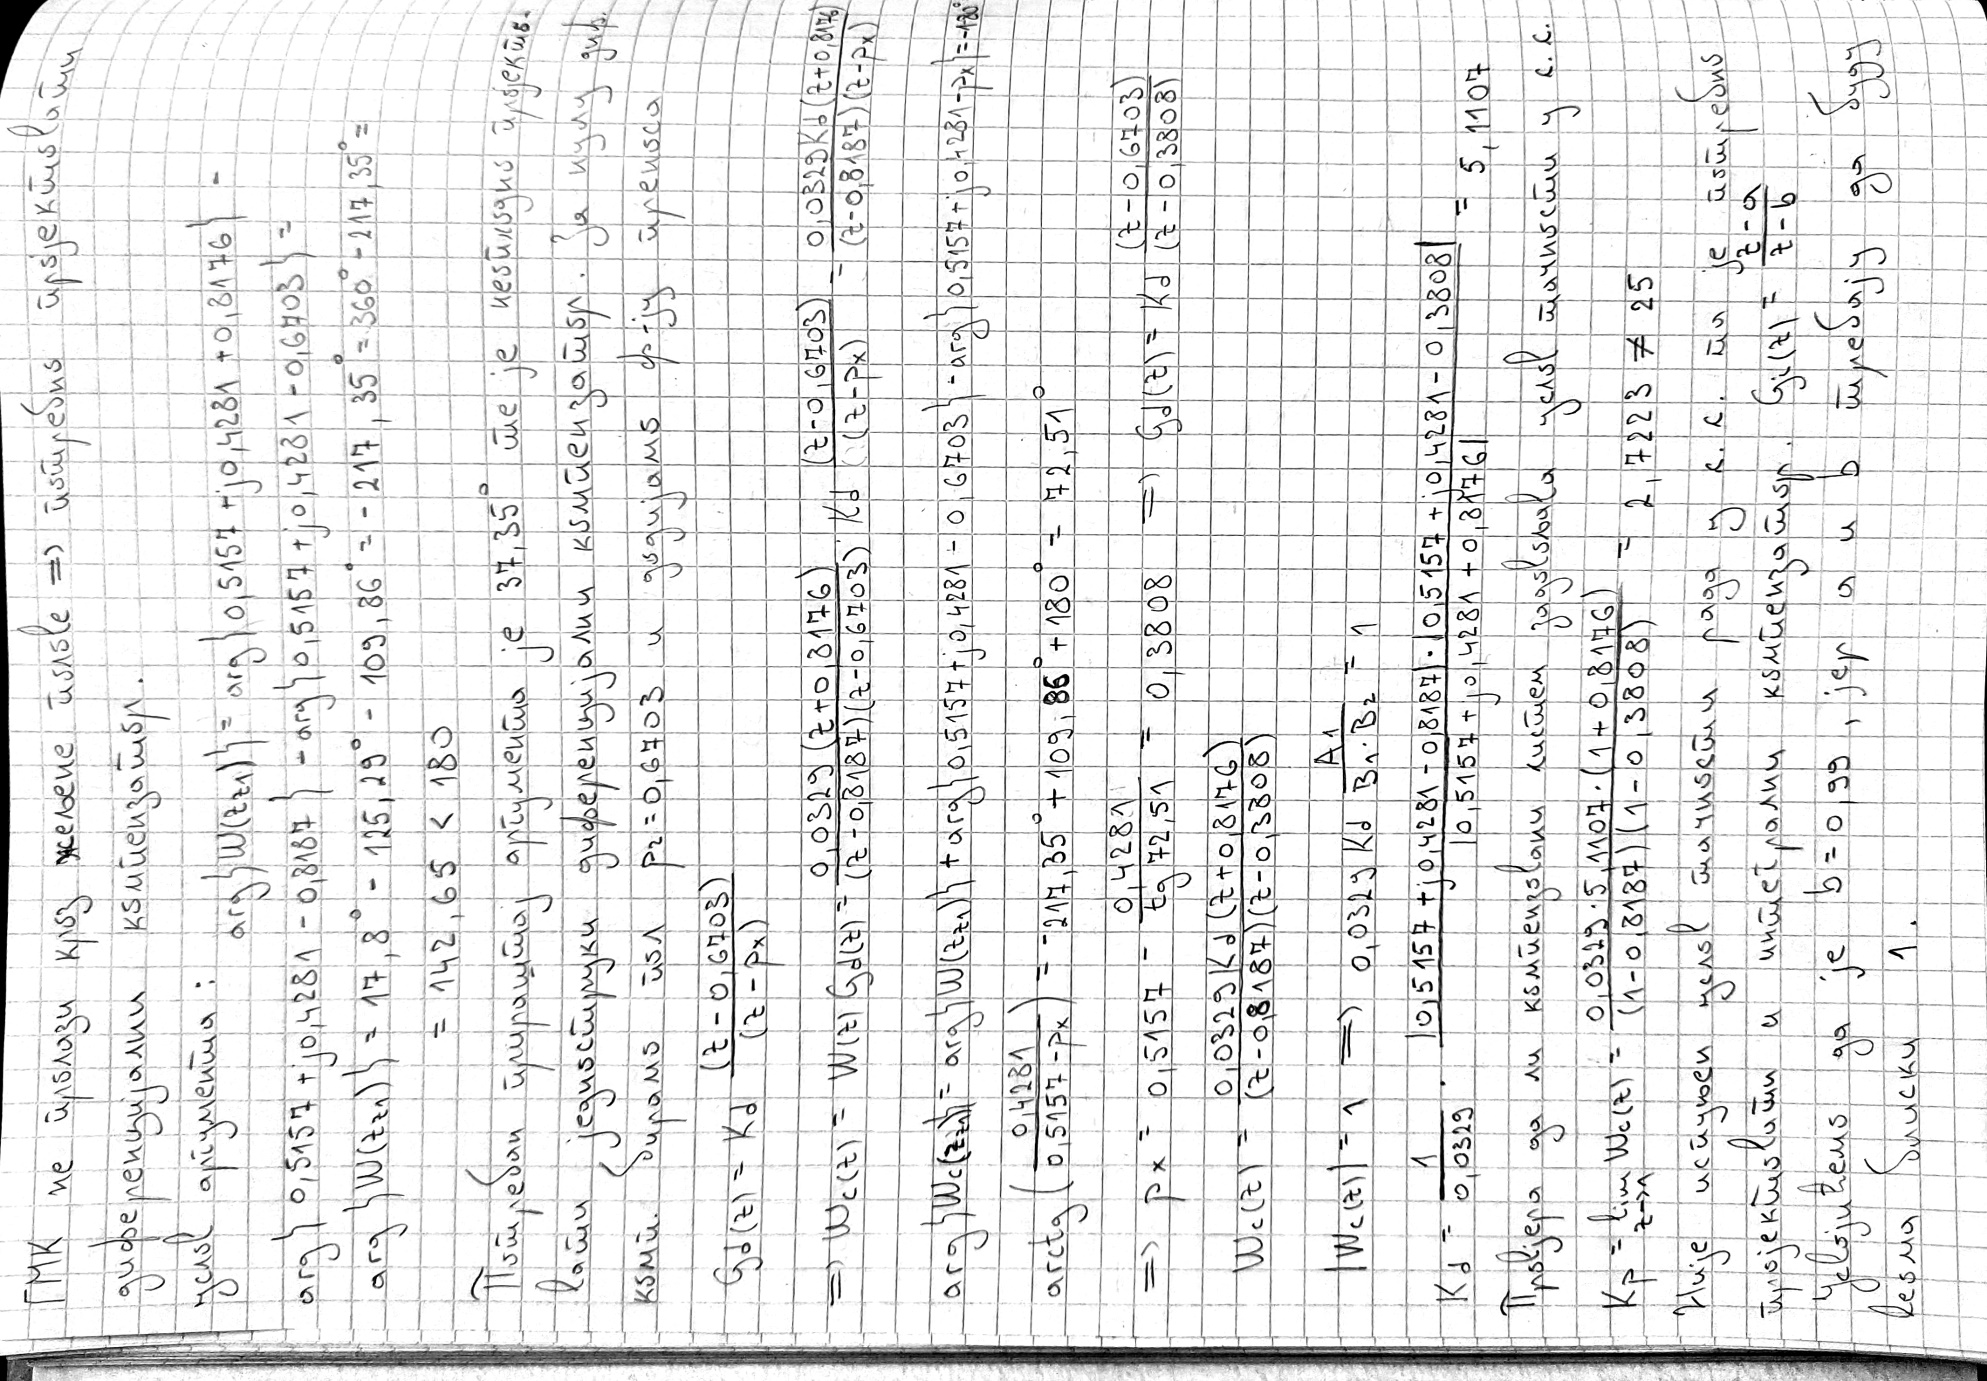 ГМК не пролази кроз жељене полове => потребно пројектовати
диференцијални компензатор.
услов аргумента: arg{W(zz1)} = arg{0,5157+j0,4281+0,8176} -
arg{0,5157+j0,4281-0,8187} - arg{0,5157+j0,4281-0,6703} =
arg{W(zz1)} = 17,8° - 125,29° - 109,86° = -217,35° = 360° - 217,35° =
= 142,65 < 180
Потребан прираштај аргумента је 37,35° те је неопходно пројекто-
вати једноструки диференцијални компензатор. За нулу диф.
комп. бирамо пол p2=0,6703 и добијамо ф-ју преноса
Gd(z) = Kd (z-0,6703)/(z-px)
=> Wc(z) = W(z) Gd(z) = 0,0329(z+0,8176)/(z-0,8187)(z-0,6703) · Kd (z-0,6703)/(z-px) = 0,0329Kd(z+0,8176)/(z-0,8187)(z-px)
arg{Wc(zz1)} = arg{W(zz1)} + arg{0,5157+j0,4281-0,6703} - arg{0,5157+j0,4281-px} = -180°
arctg(0,4281/0,5157-px) = -217,35° + 109,86° + 180° = 72,51°
=> px = 0,5157 - 0,4281/tg72,51 = 0,3808 => Gd(z) = Kd (z-0,6703)/(z-0,3808)
Wc(z) = 0,0329Kd(z+0,8176)/(z-0,8187)(z-0,3808)
|Wc(z)| = 1 => 0,0329 Kd A1/B1·B2 = 1
Kd = 1/0,0329 · |0,5157+j0,4281-0,8187|·|0,5157+j0,4281-0,3808|/|0,5157+j0,4281+0,8176| = 5,1107
Провјера да ли компензовани систем задовољава услов тачности у с.с.
Kp = lim z→1 Wc(z) = 0,0329·5,1107·(1+0,8176)/(1-0,8187)(1-0,3808) = 2,7223 ≠ 25
Није испуњен услов тачности рада у с.с. па је потребно
пројектовати и интегрални компензатор. Gi(z) = z-a/z-b
Усвојићемо да је b=0,99, јер a и b требају да буду
веома блиски 1.